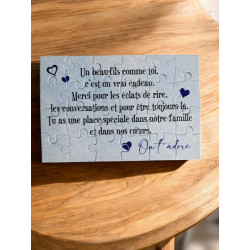 Un beau-fils comme toi,
c'est un vrai cadeau.
Merci pour les éclats de rire,
les conversations et pour être toujours là.
Tu as une place spéciale dans notre famille
et dans nos cœurs.
On t'adore